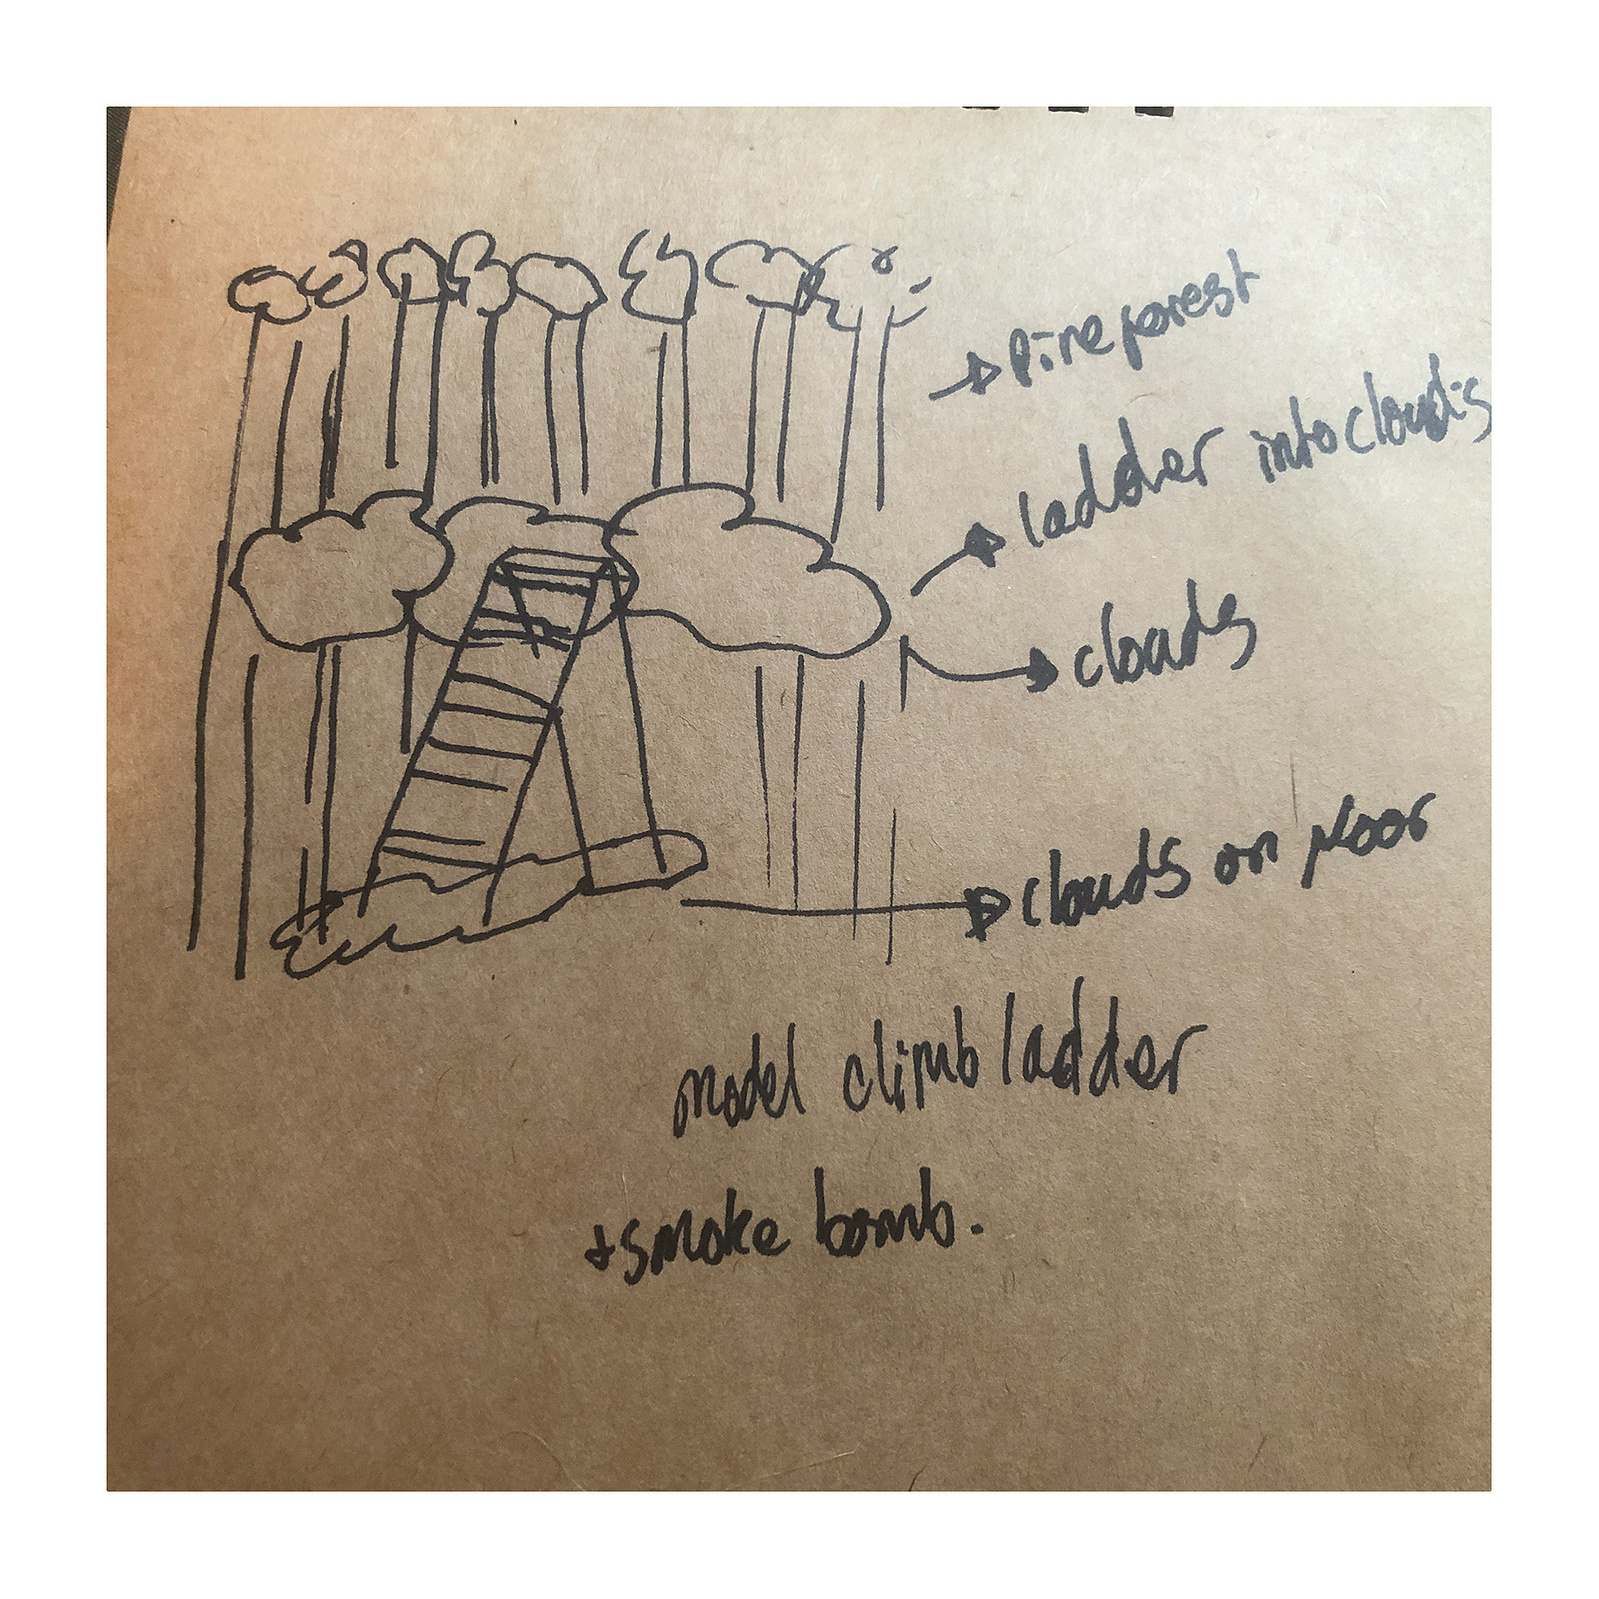 Pine forest
ladder into clouds
clouds
clouds on floor
model climb ladder
+ smoke bomb.